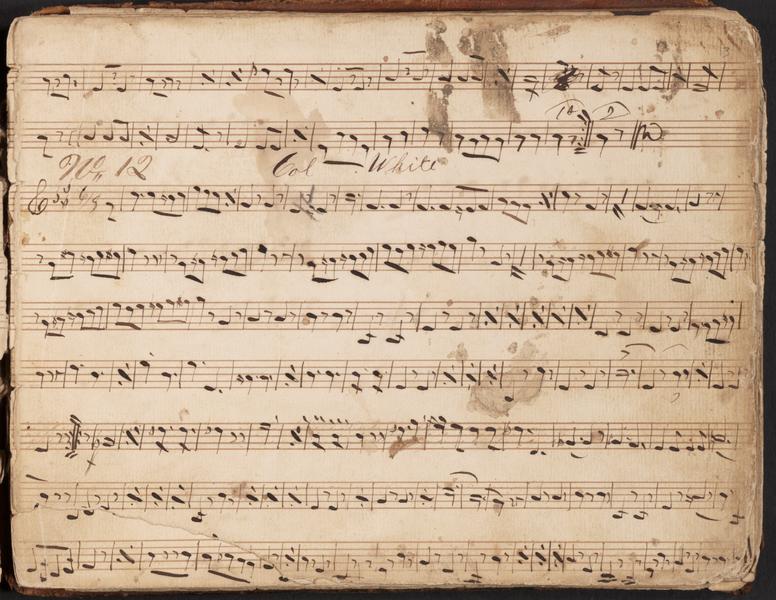 No. 12 Col. White